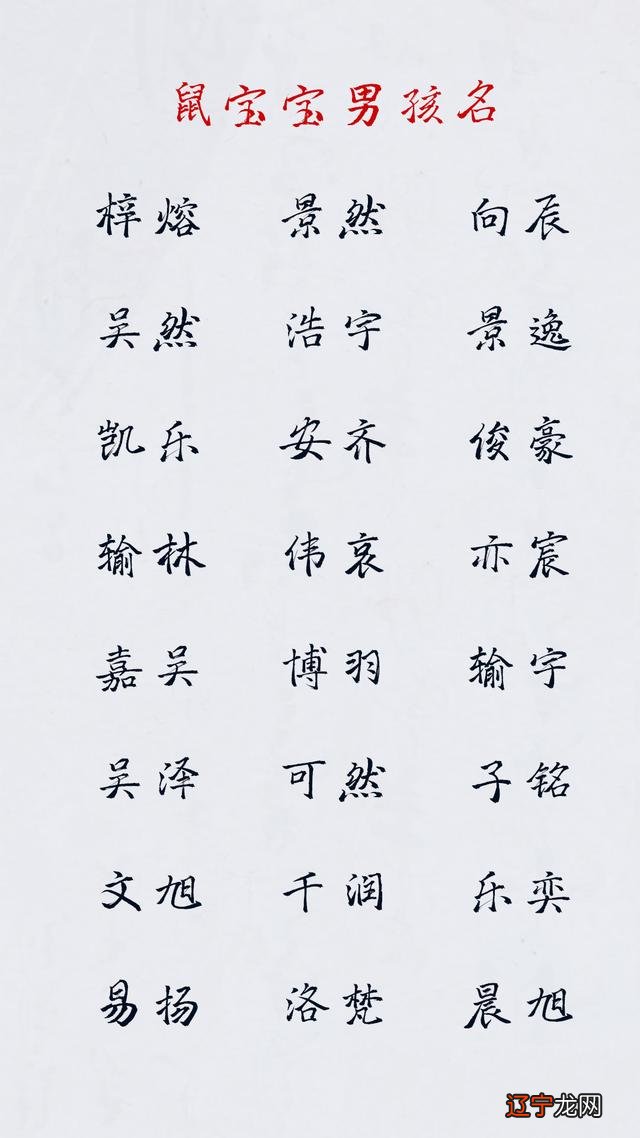 鼠宝宝男孩名
梓熔 景然 向辰
吴然 浩宇 景逸
凯乐 安齐 俊豪
输林 伟哀 亦宸
嘉吴 博羽 输宇
吴泽 可然 子铭
文旭 千润 乐奕
易扬 洛梵 晨旭
辽宁龙网